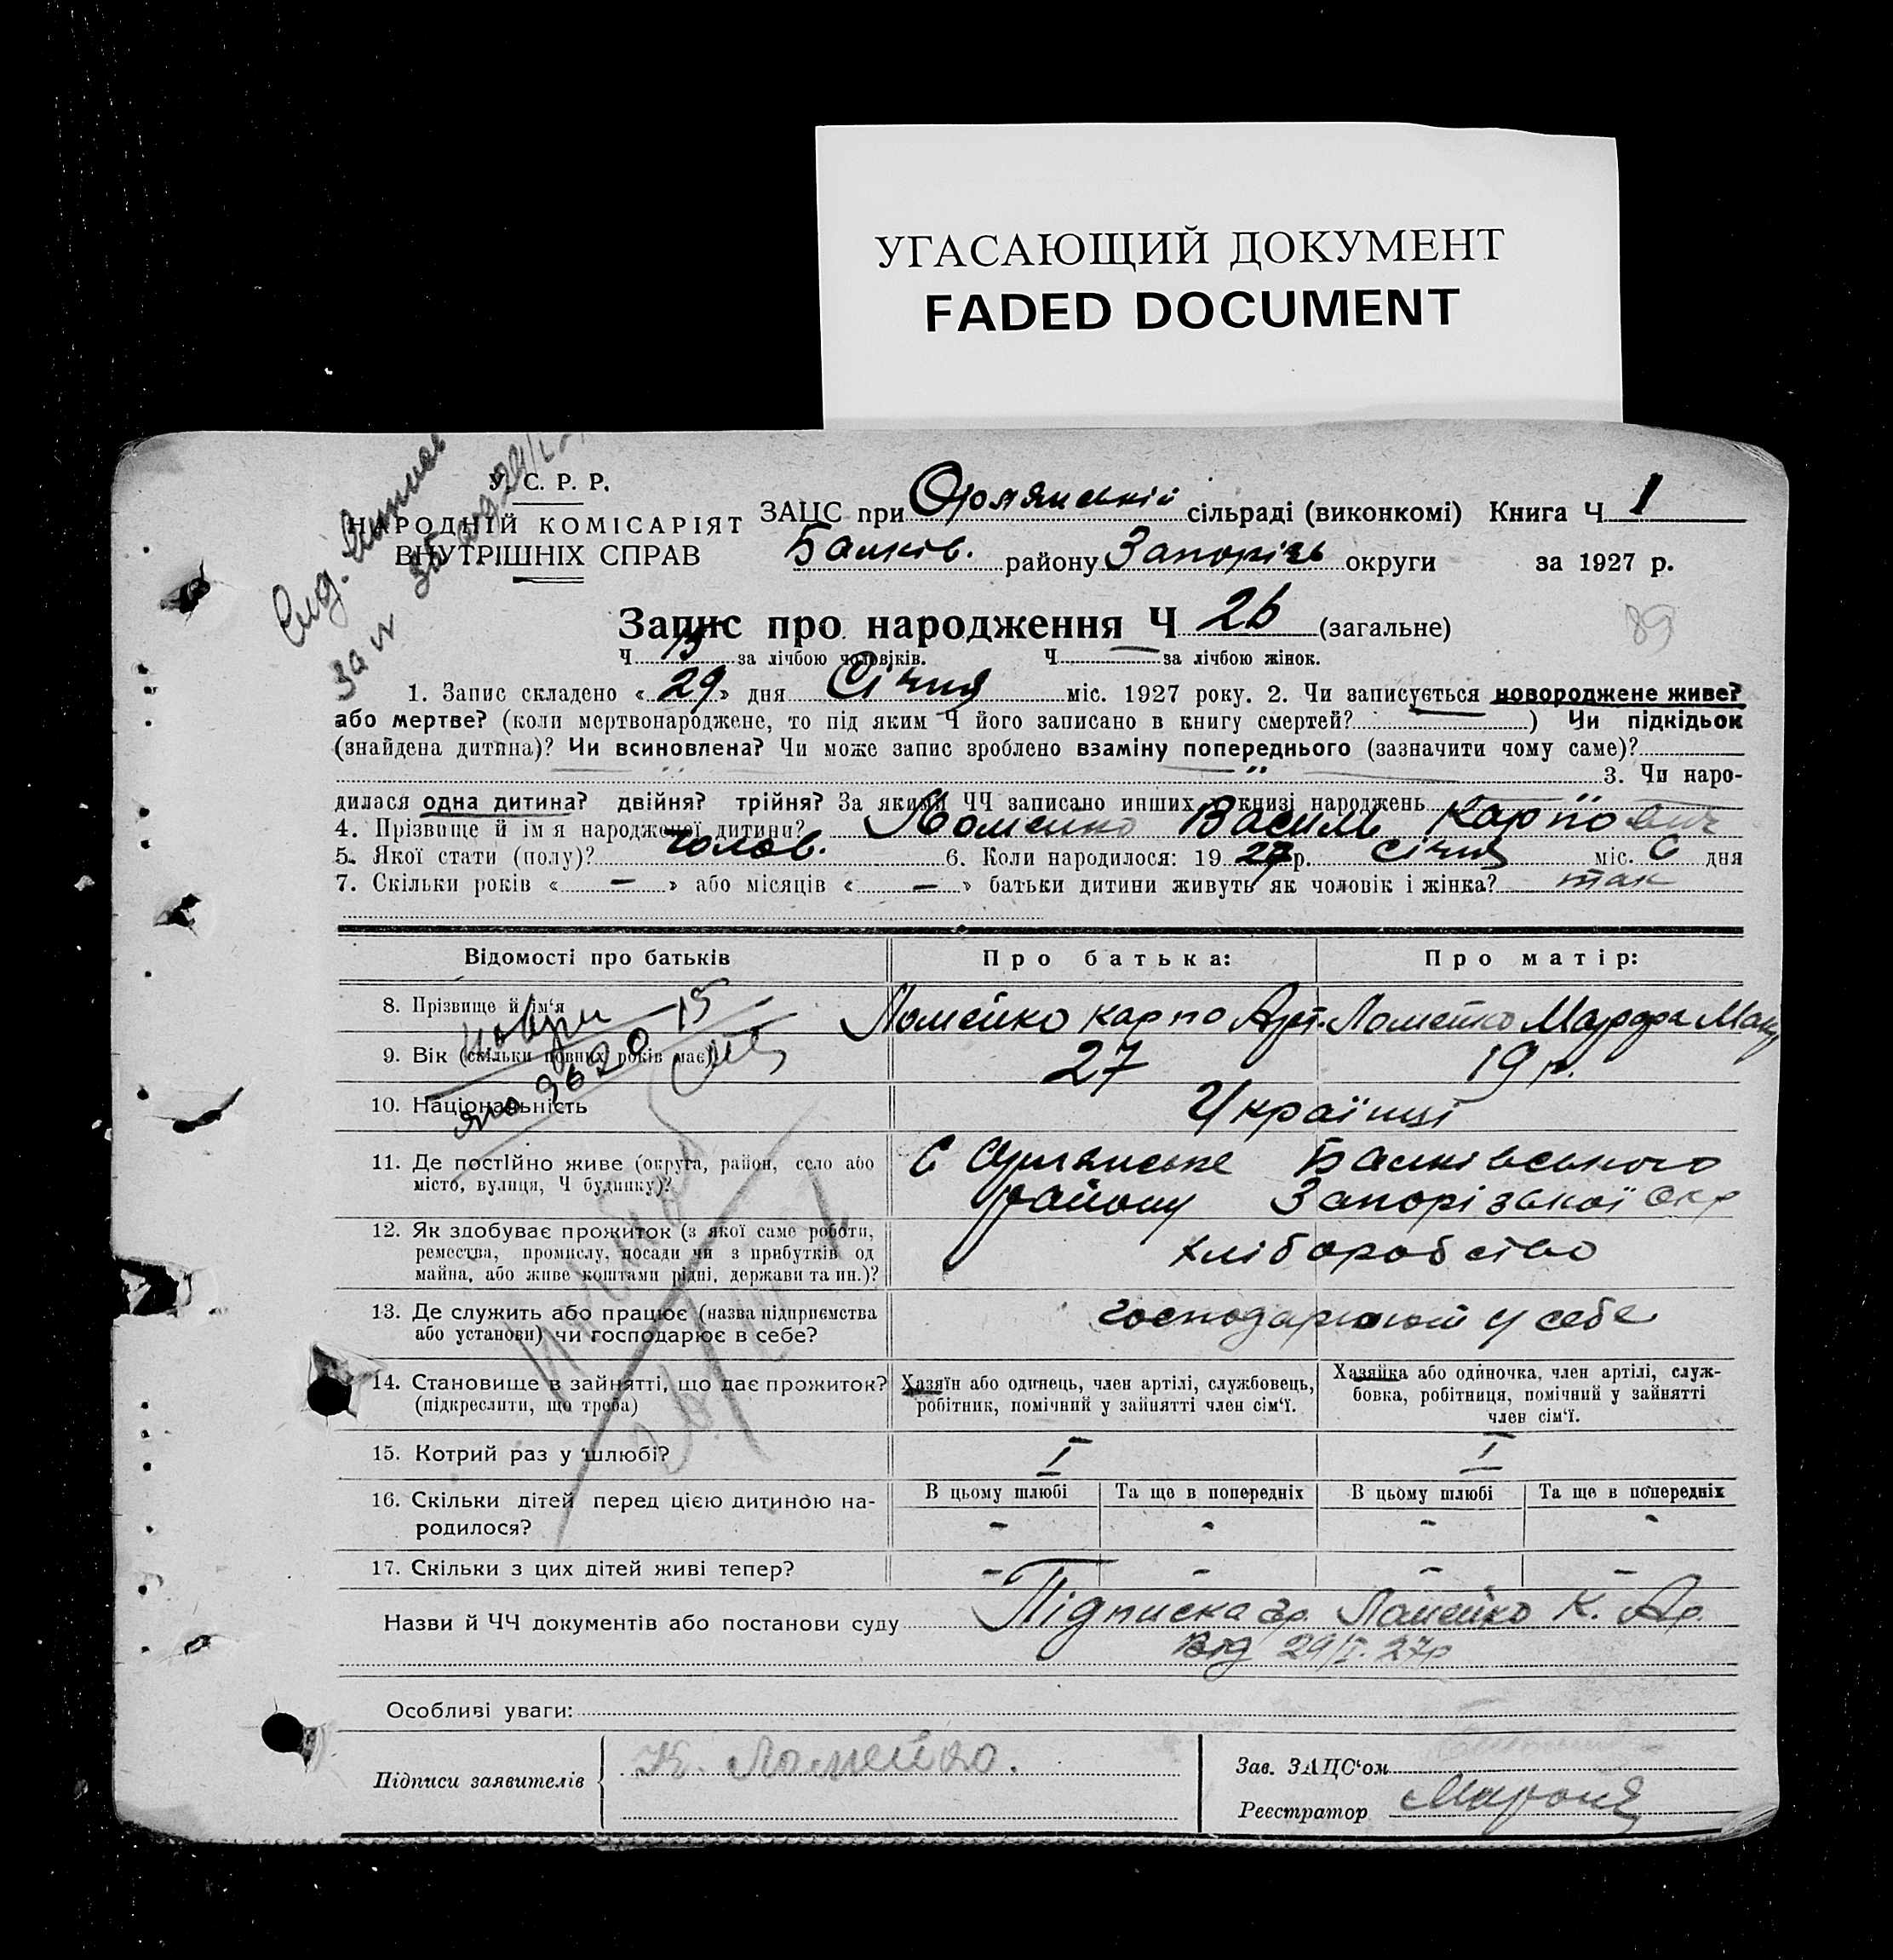 УГАСАЮЩИЙ ДОКУМЕНТ
FADED DOCUMENT
У. С. Р. Р.
НАРОДНІЙ КОМІСАРІЯТ
ВНУТРІШНІХ СПРАВ
ЗАЦС при Орлянській сільраді (виконкомі) Книга Ч 1
Балків. району Запорізь округи за 1927 р.
Запис про народження Ч 26 (загальне)
89
Ч 13 за лічбою чоловіків. Ч — за лічбою жінок.
1. Запис складено «29» дня Січня міс. 1927 року. 2. Чи записується новороджене живе?
або мертве? (коли мертвонароджене, то під яким Ч його записано в книгу смертей?) Чи підкідьок
(знайдена дитина)? Чи всиновлена? Чи може запис зроблено взаміну попереднього (зазначити чому саме)?
3. Чи наро-
дилася одна дитина? двійня? трійня? За якими ЧЧ записано инших в книзі народжень
4. Прізвище й ім'я народженої дитини? Ломейко Василь Карпович
5. Якої стати (полу)? Чолов. 6. Коли народилося: 1927 р. січня міс. 6 дня
7. Скільки років «—» або місяців «—» батьки дитини живуть як чоловік і жінка? так
Відомості про батьків
Про батька:
Про матір:
8. Прізвище й ім'я
Ломейко Карпо Арт.
Ломейко
9. Вік (скільки повних років має)
27
19 р.
10. Національність
Українці
11. Де постійно живе (округа, район, село або
місто, вулиця, Ч будинку)?
С Орлянське Балківського
району Запорізької окр
12. Як здобуває прожиток (з якої саме роботи,
ремества, промислу, посади чи з прибутків од
майна, або живе коштами рідні, держави та ин.)?
хліборобство
13. Де служить або працює (назва підприємства
або установи) чи господарює в себе?
господарюють у себе
14. Становище в зайнятті, що дає прожиток?
(підкреслити, що треба)
Хазяїн або одинець, член артілі, службовець,
робітник, помічний у зайнятті член сім'ї.
Хазяйка або одиночка, член артілі, служ-
бовка, робітниця, помічний у зайнятті
член сім'ї.
15. Котрий раз у шлюбі?
I
I
16. Скільки дітей перед цією дитиною на-
родилося?
В цьому шлюбі
Та ще в попередніх
В цьому шлюбі
Та ще в попередніх
- - - -
17. Скільки з цих дітей живі тепер?
- - - -
Назви й ЧЧ документів або постанови суду Підписка гр. Ломейко К. Ар.
від 29/I. 27р
Особливі уваги:
Підписи заявителів
К. Ломейко.
Зав. ЗАЦС'ом
Реєстратор